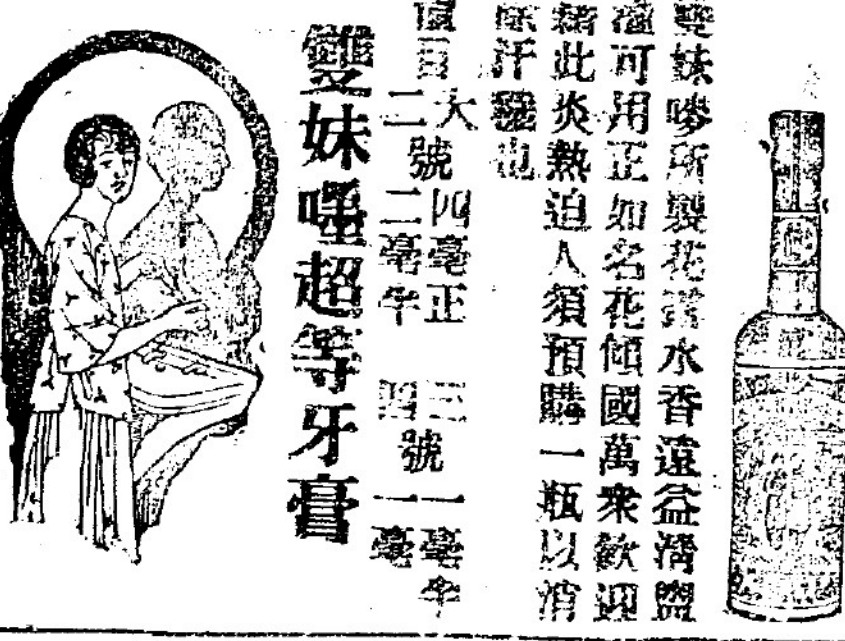 雙妹嘜所製花露水香遠益清盥
可用正如名花傾國萬衆歡迎
藉此炎熱迫人須預購一瓶以消
除汗穢也
價目 大號 四毫正 三號 一毫半
二號 二毫半 四號 一毫
雙妹嚜超等牙膏